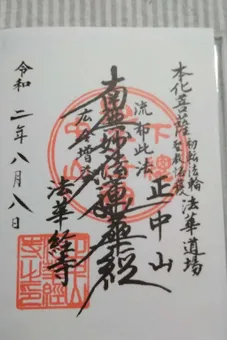 本化菩薩初転法輪法華道場
正中山
流布此法
南無妙法蓮華経
広令増益
法華経寺
令和二年八月八日